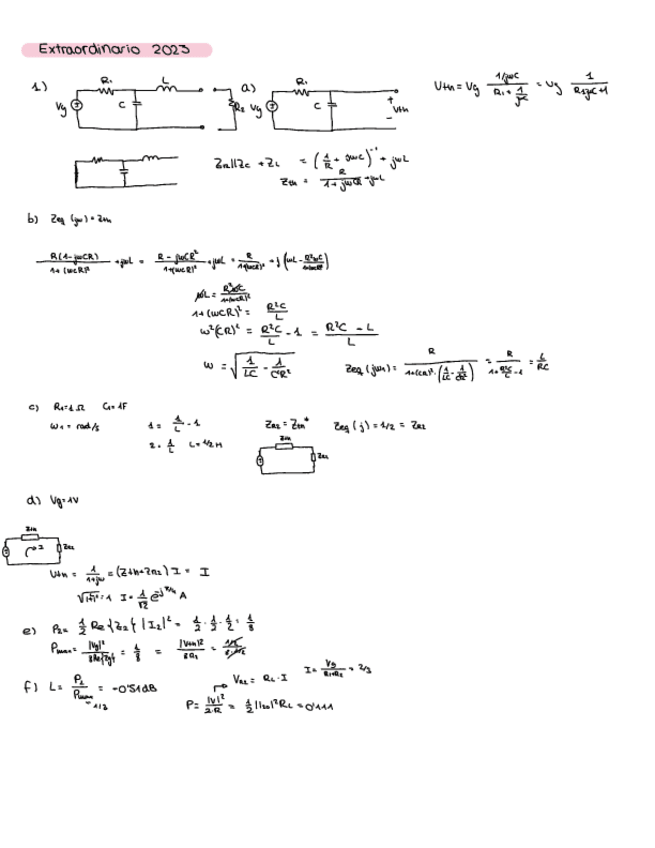 Extraordinario 2023
1) R₁ L Vg C R₂
a) R₁ Vg C + Vth -
Vth = Vg (1/jωC)/(R₁ + 1/jωC) = Vg 1/(R₁jωC+1)
Z_R1||Z_C + Z_L = (1/R + jωC)⁻¹ + jωL
Zth = R/(1+jωCR) + jωL
b) Zeq (jω) = Zth
R(1-jωCR)/(1+(ωCR)²) + jωL = (R - jωCR²)/(1+(ωCR)²) + jωL = R/(1+(ωCR)²) + j(ωL - R²ωC/(1+(ωCR)²))
ωL = R²ωC/(1+(ωCR)²)
1+(ωCR)² = R²C/L
ω²(CR)² = R²C/L - 1 = (R²C - L)/L
ω = √(1/LC - 1/C²R²) Zeq (jω₁) = R/(1+(CR)²·(1/LC - 1/C²R²)) = R/(1+R²C/L-1) = L/RC
c) R₁=1 Ω C₁= 1F
ω₁ = rad/s 1 = 1/L - 1 Z_R2 = Zth* Zeq (j) = 1/2 = Z_R2
2 = 1/L L = 1/2 H
Zth
Z_R2
d) Vg=1V
Zth
I Z_R2
Vth = 1/(1+jω) = (Zth+Z_R2) I = I
√(1+1)²=1 I = 1/√2 e^(-jπ/4) A
e) P₂= 1/2 Re{Z₂} |I₂|² = 1/2 · 1/2 · 1/2 = 1/8
Pmax = |Vg|²/8Re{Zg} = 1/8 = |Vth|²/8R₁
f) L = P₂/Pmax = -0'51 dB
V_R2 = R_L · I I = Vg/(R₁+R₂) = 2/3
P = |V|²/2·R = 1/2 |I₂₀|² R_L = 0'111